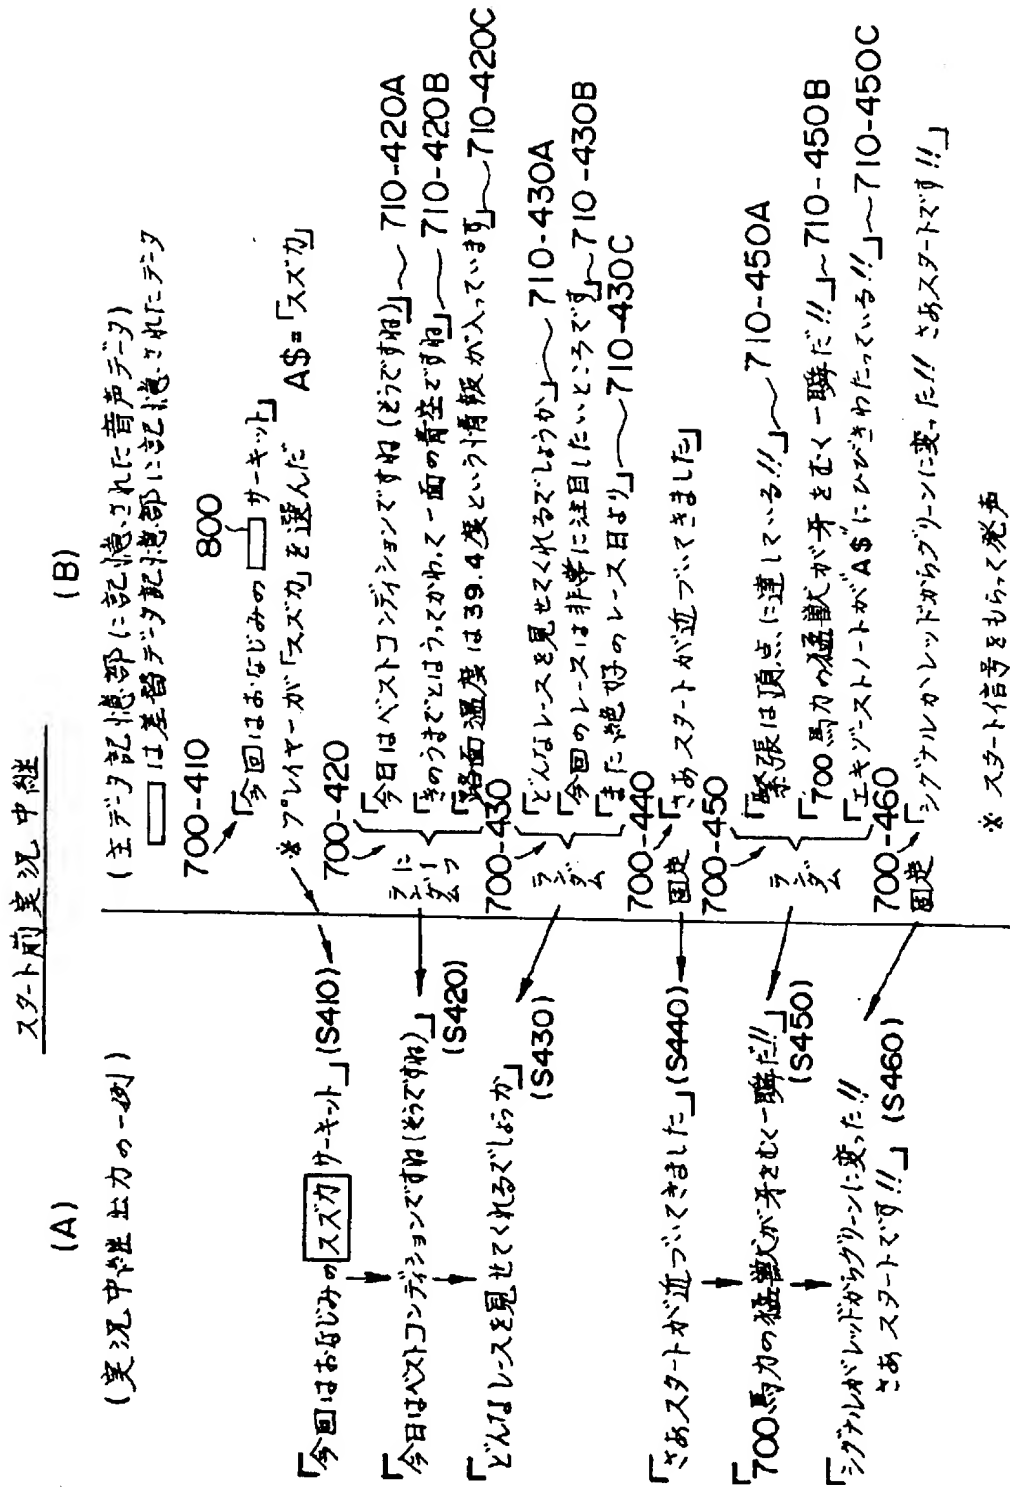 スタート前実況中継
(A)
(実況中継出力の一例)
「今回はおなじみのスズカサーキット」(S410)
「今日はベストコンディションですね(そうですね)」
(S420)
「どんなレースを見せてくれるでしょうか」
(S430)
「さあスタートが近づいてきました」(S440)
「700馬力の猛獣が牙をむく一瞬だ!!」
(S450)
「シグナルがレッドからグリーンに変った!!
さあスタートです!!」(S460)
(B)
(主データ記憶部に記憶された音声データ)
は差替データ記憶部に記憶されたデータ
700-410
800
「今回はおなじみの サーキット」
※プレイヤーが「スズカ」を選んだ A$=「スズカ」
700-420
ランダムに
「今日はベストコンディションですね(そうですね)」~710-420A
「きのうまでとはうってかわって一面の青空ですね」~710-420B
「路面温度は39.4度という情報が入っています」~710-420C
700-430
ランダム
「どんなレースを見せてくれるでしょうか」~710-430A
「今回のレースは非常に注目したいところです」~710-430B
「また絶好のレース日より」~710-430C
700-440
固定
「さあスタートが近づいてきました」
700-450
ランダム
「緊張は頂点に達している!!」~710-450A
「700馬力の猛獣が牙をむく一瞬だ!!」~710-450B
「エキゾーストノートが"A$"にひびきわたっている!!」~710-450C
700-460
固定
「シグナルがレッドからグリーンに変った!! さあスタートです!!」
※ スタート信号をもらって発声